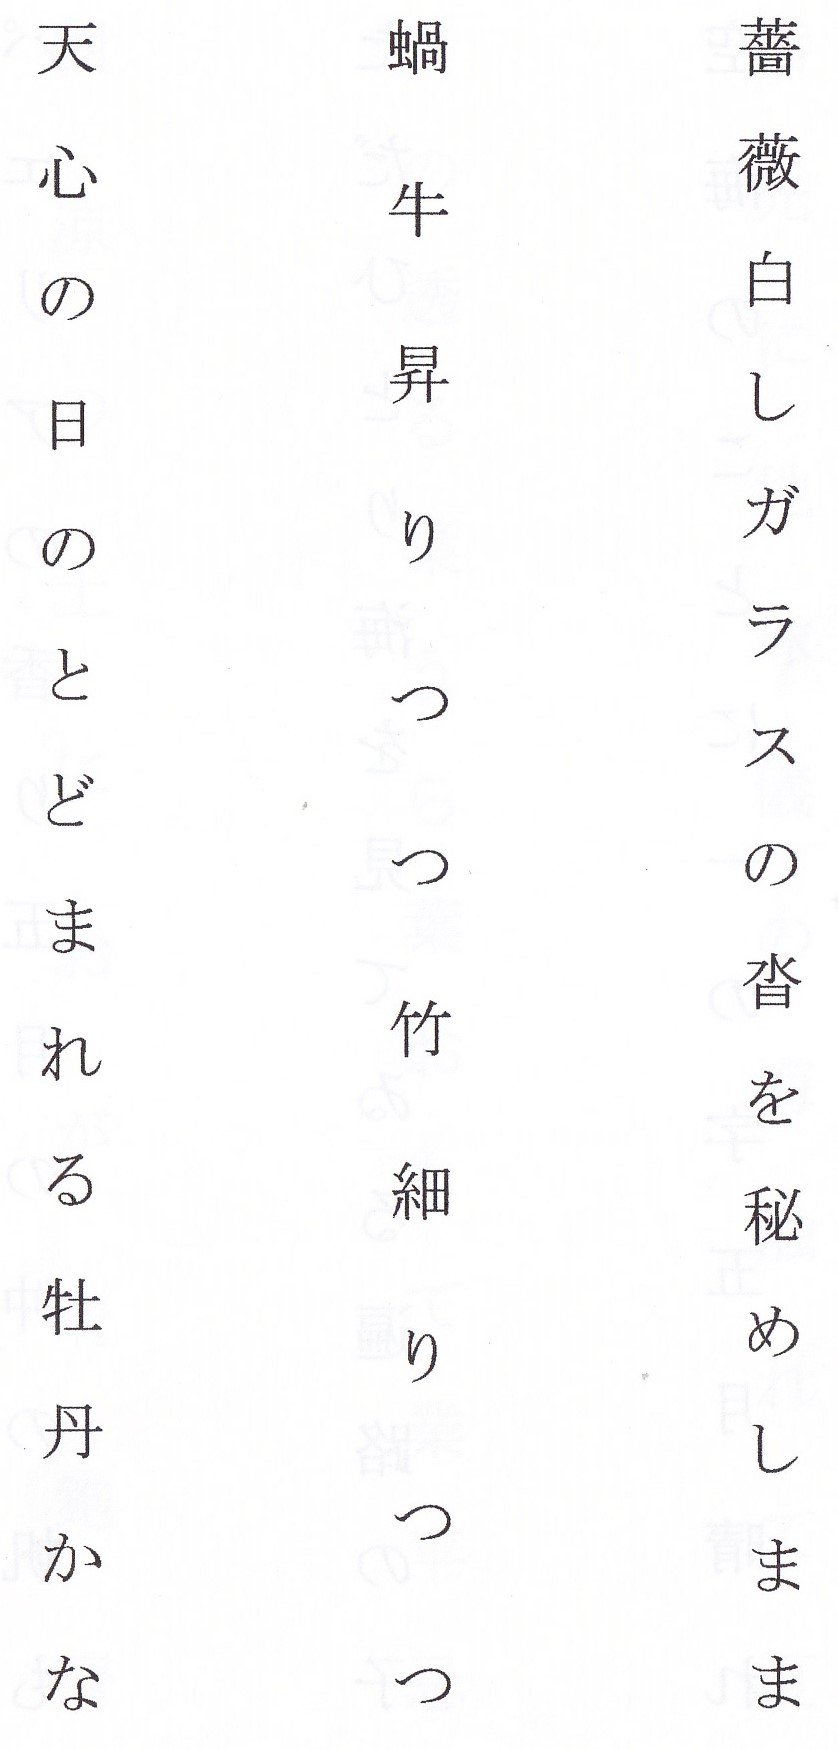 薔薇白しガラスの沓を秘めしまま
蝸牛昇りつつ竹細りつつ
天心の日のとどまれる牡丹かな